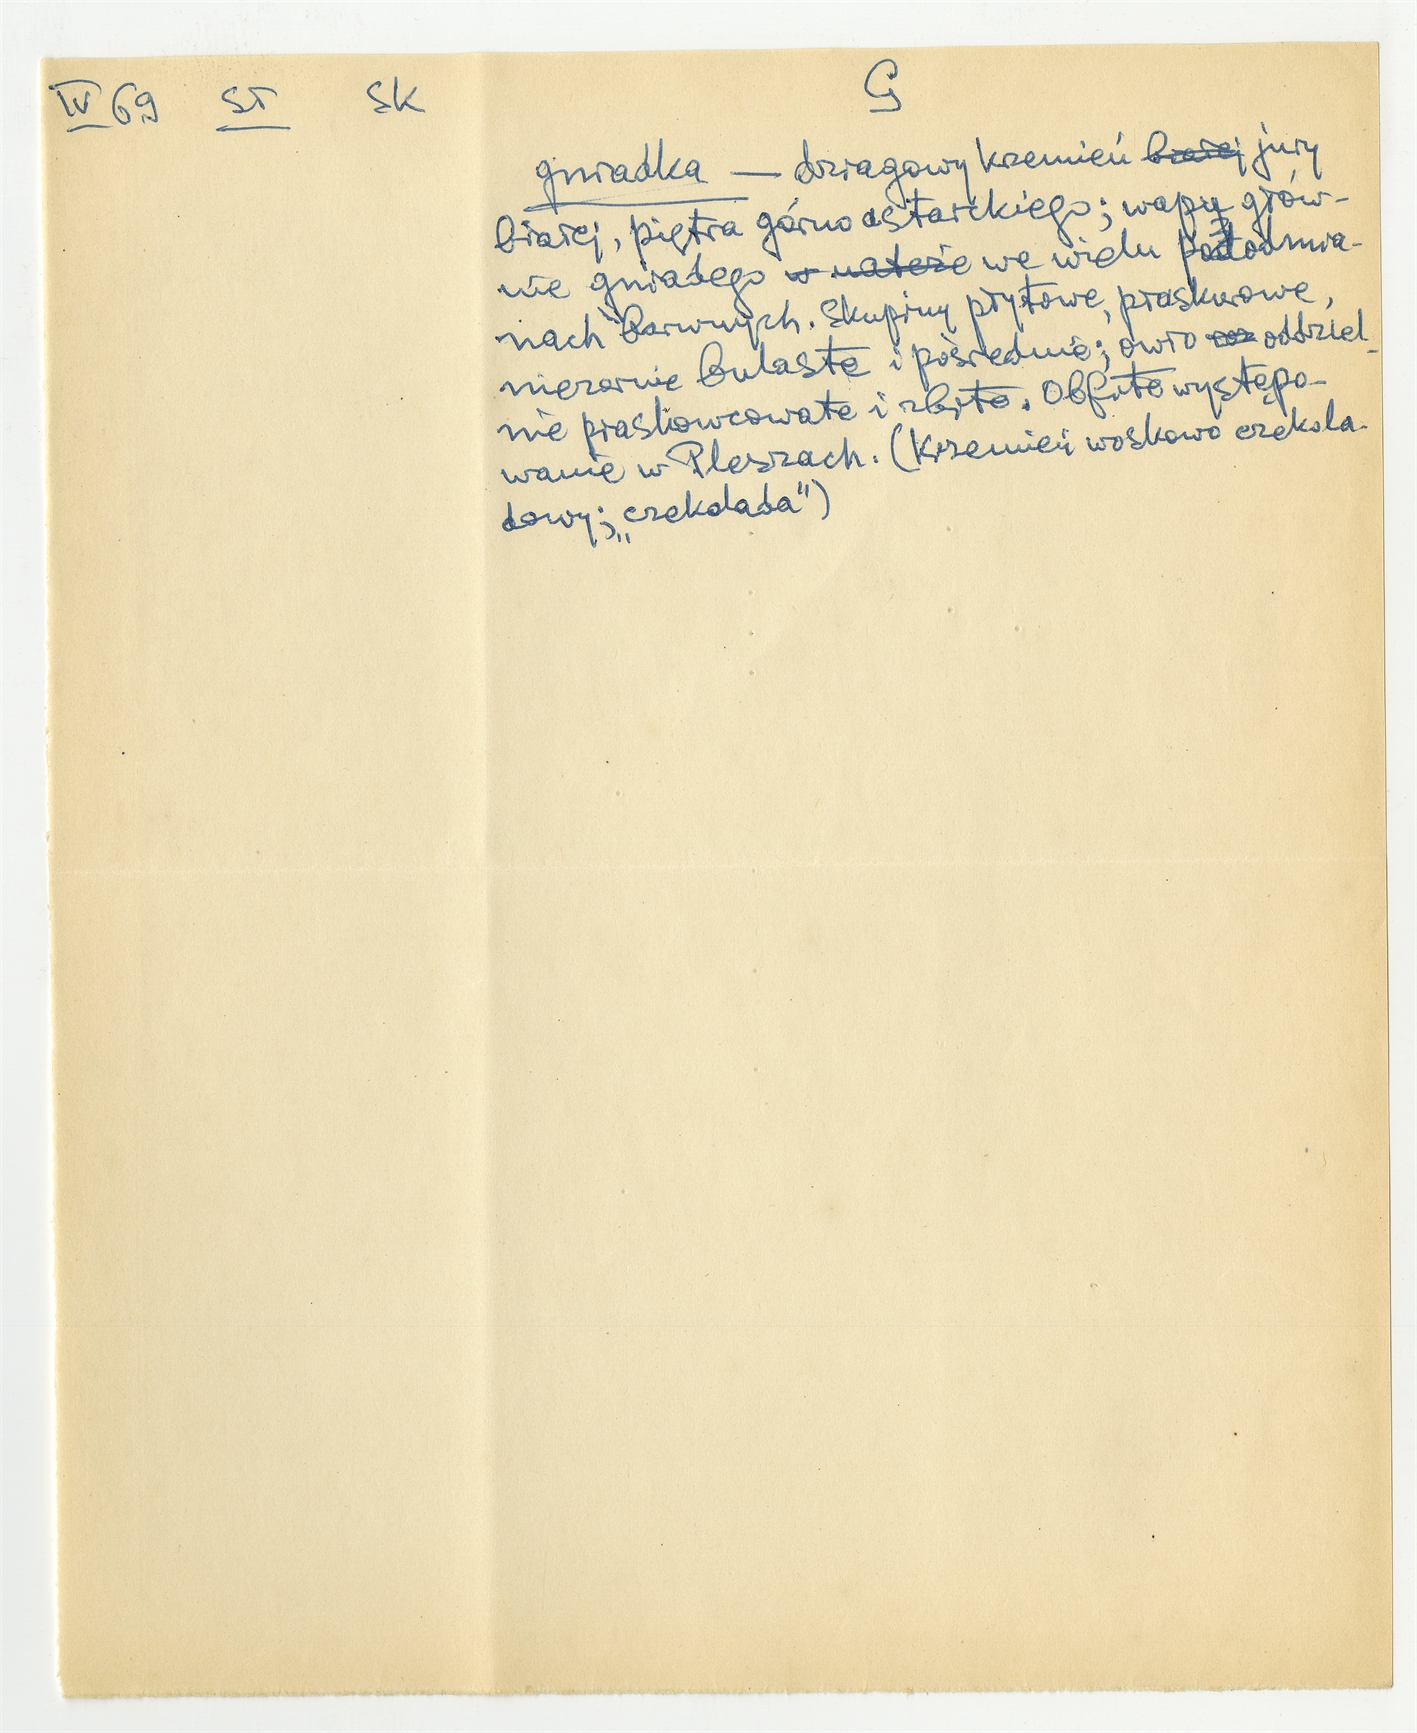 IV 69 ST SK
G
gniadka — dziagowy krzemień białej jury
białej, piętra górno astarckiego; wapy głów-
nie gniadego w naterze we wielu pododmia-
nach barwnych. Skupiny płytowe, płaskurowe,
niezornie bulaste i pośrednie; owto oddziel-
nie piaskowcowate i zbite. Obfite występo-
wanie w Pleszach. (Krzemień woskowo czekola-
dowy; „czekolada")